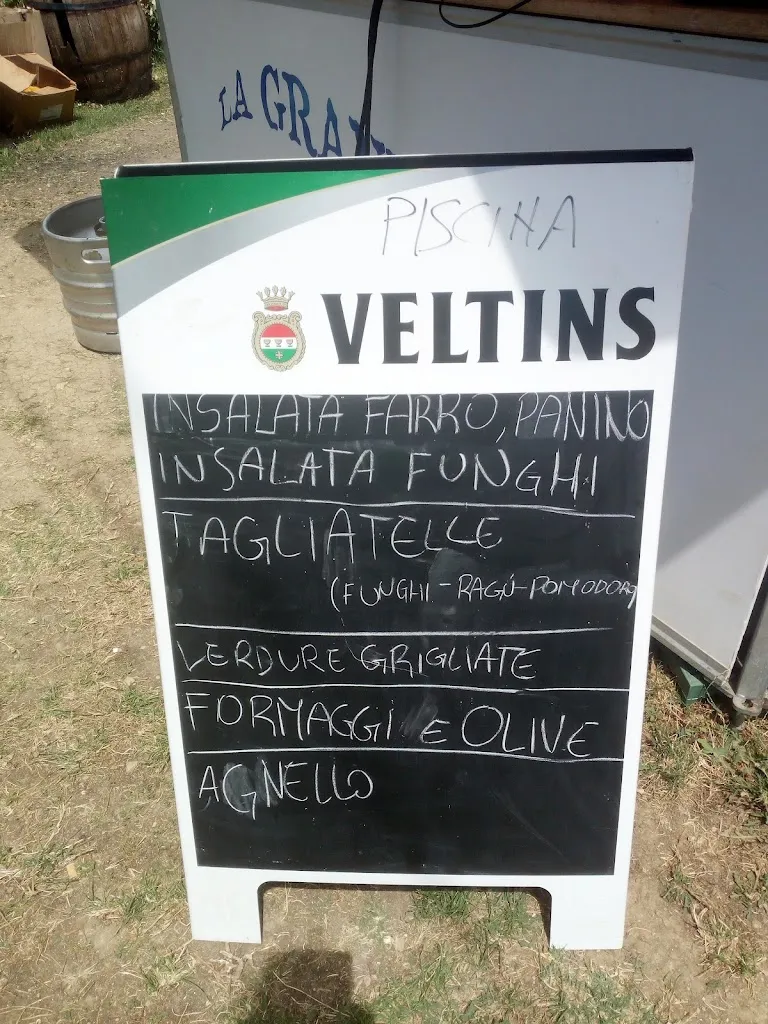 LA GRAN
PISCINA
VELTINS
INSALATA FARRO, PANINO
INSALATA FUNGHI
TAGLIATELLE
(FUNGHI - RAGÙ - POMODORO)
VERDURE GRIGLIATE
FORMAGGI E OLIVE
AGNELLO